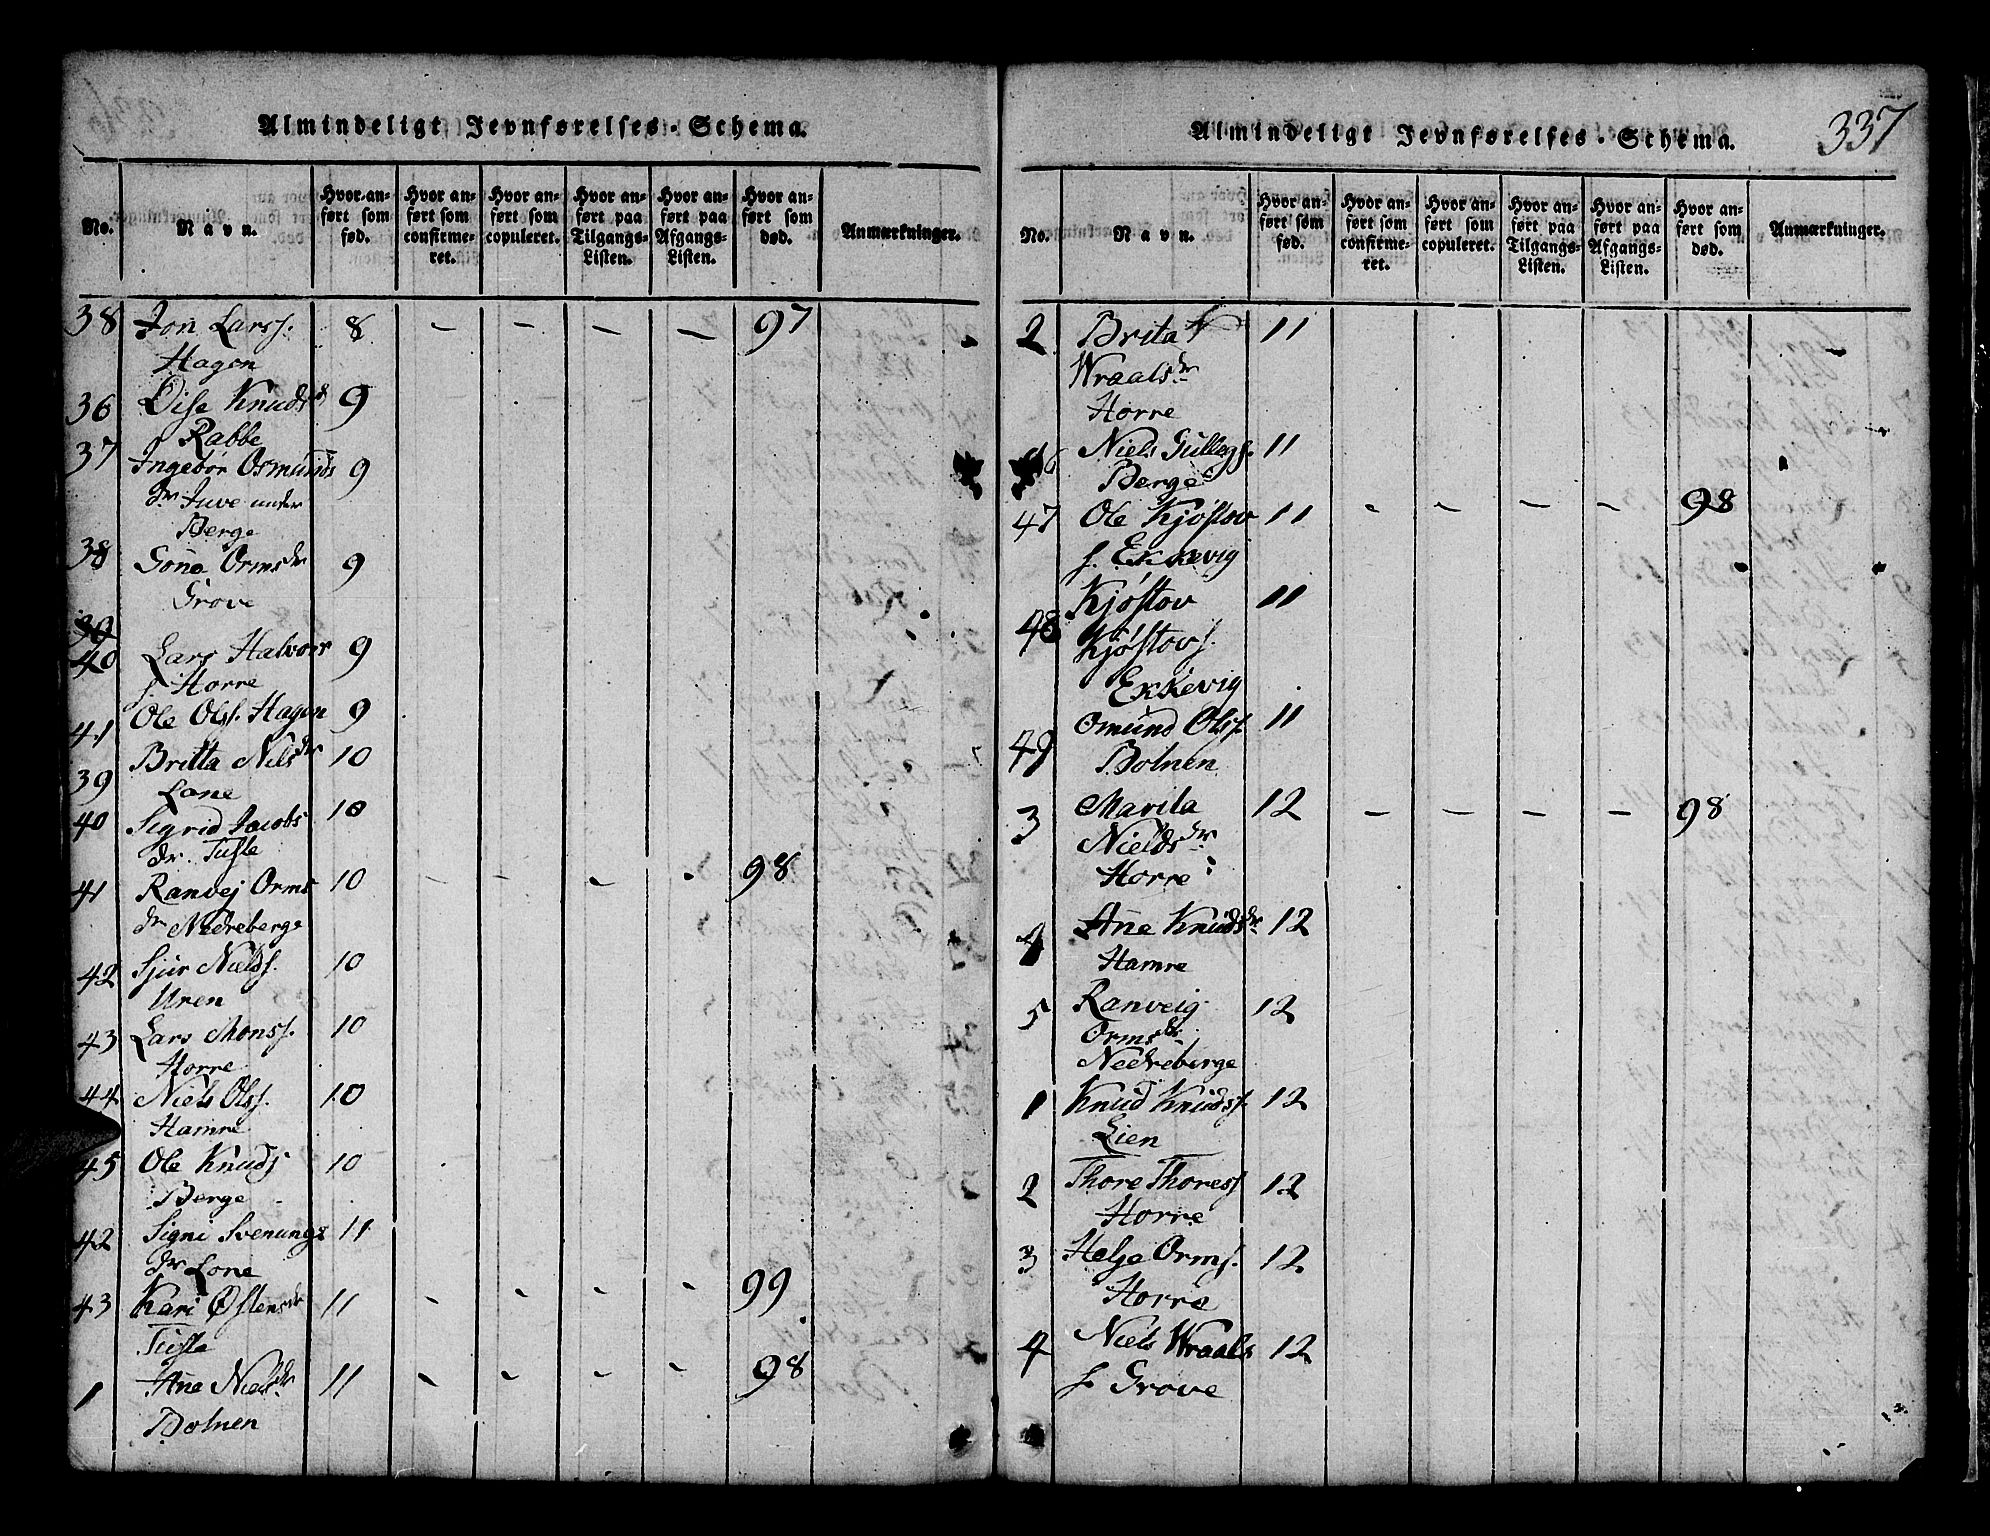 Almindeligt Jevnførelses-Schema.
No. Navn. Hvor anført som fød. Hvor anført som confirmeret. Hvor anført som copuleret. Hvor anført paa Tilgangs-Listen. Hvor anført paa Afgangs-Listen. Hvor anført som død. Anmærkninger.
38 Jon Larss. 8 - - - - 97
Hagen
36 Knuds 9
Rabbe
37 Ingebór Osmunds 9
dr Juve under
Berge
38 Orms dr 9
Grove
39
40 Lars Halvors 9
s. Horre
41 Ole Olss. Hagen 9
39 Britta Niels dr 10
Lone
40 Sigrid Jacobs 10
dr. Tufte
41 Ranvej Orms 10 - - - - 98
dr Nedreberge
42 Sjur Nields. 10
Uren
43 Lars Monss. 10
Horre
44 Niels Olss. 10
Hamre
45 Ole Knuds 10
Berge
42 Signi Svenungs 11
dr Lone
43 Kari Østens dr 11 - - - - 99
Tufte
1 Ane Niels dr 11 - - - - 98
Botnen
Almindeligt Jevnførelses-Schema. 337
No. Navn. Hvor anført som fød. Hvor anført som confirmeret. Hvor anført som copuleret. Hvor anført paa Tilgangs-Listen. Hvor anført paa Afgangs-Listen. Hvor anført som død. Anmærkninger.
2 Brita 11
Wraals dr
Horre
Niels Gullegs. 11
Berge
47 Ole Kjóstov 11 - - - - 98
s. Ekkevig
48 Kjóstov 11
Kjóstovs.
Ekkevig
49 Osmund Olss. 11
Botnen
3 Marita 12 - - - - 98
Nields dr
Horre
4 Ane Knuds dr 12
Hamre
5 Ranveig 12
Orms dr
Nedreberge
1 Knud Knudss. 12
Lien
2 Thore Thoress 12
Horre
3 Helje Orms. 12
Horre
4 Niels Wraals 12
s Grove